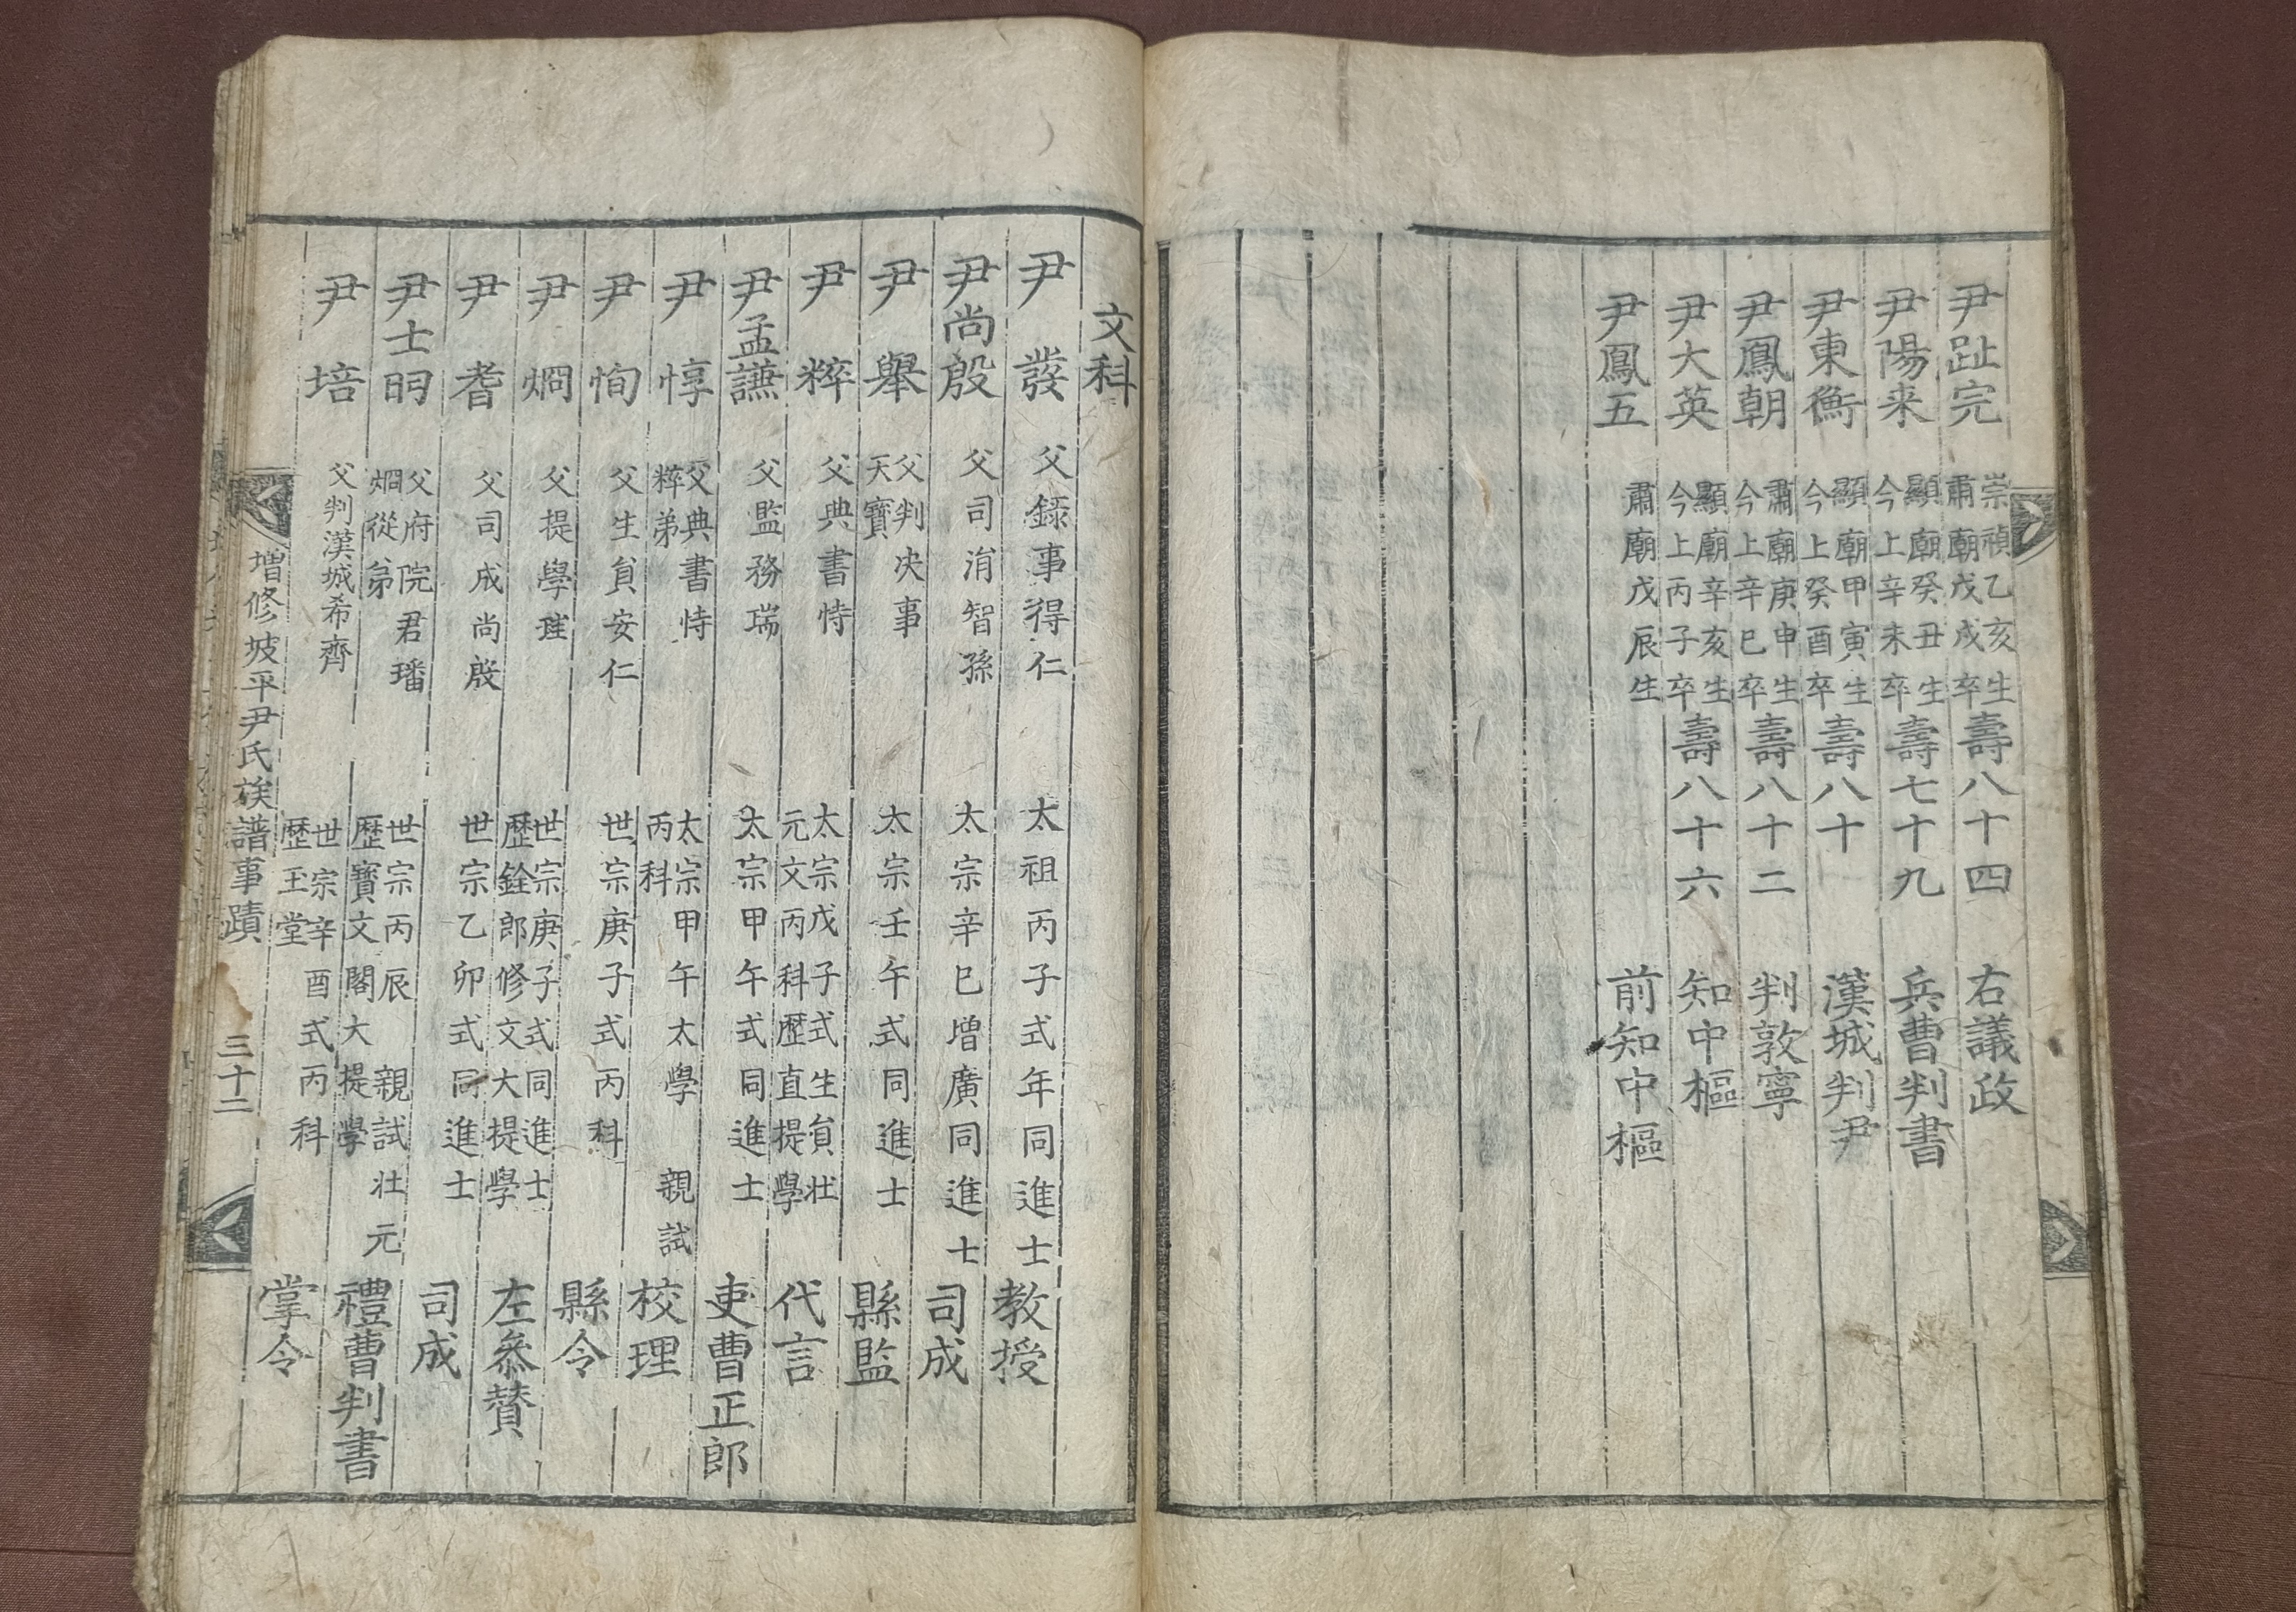 尹趾完 崇禎乙亥生 肅廟戊戌卒 壽八十四 右議政
尹陽来 顯廟癸丑生 今上辛未卒 壽七十九 兵曹判書
尹東衡 顯廟甲寅生 今上癸酉卒 壽八十 漢城判尹
尹鳳朝 肅廟庚申生 今上辛巳卒 壽八十二 判敦寧
尹大英 顯廟辛亥生 今上丙子卒 壽八十六 知中樞
尹鳳五 肅廟戊辰生 前知中樞
文科
尹發 父錄事得仁 太祖丙子式年同進士 教授
尹尚殷 父司涓智孫 太宗辛巳增廣同進士 司成
尹舉 父判决事天寶 太宗壬午式同進士 縣監
尹粹 父典書恃 太宗戊子式生貟壯元文丙科歷直提學 代言
尹孟謙 父監務瑞 太宗甲午式同進士 吏曹正郎
尹惇 父典書恃粹弟 太宗甲午太學親試丙科 校理
尹恂 父生貟安仁 世宗庚子式丙科 縣令
尹炯 父提學珪 世宗庚子式同進士歷銓郎修文大提學 左叅賛
尹耆 父司成尚殷 世宗乙卯式同進士 司成
尹士昀 父府院君璠炯從弟 世宗丙辰親試壯元歷寶文閣大提學 禮曹判書
尹培 父判漢城希齊 世宗辛酉式丙科歷玉堂 掌令
增修坡平尹氏族譜事蹟 三十二